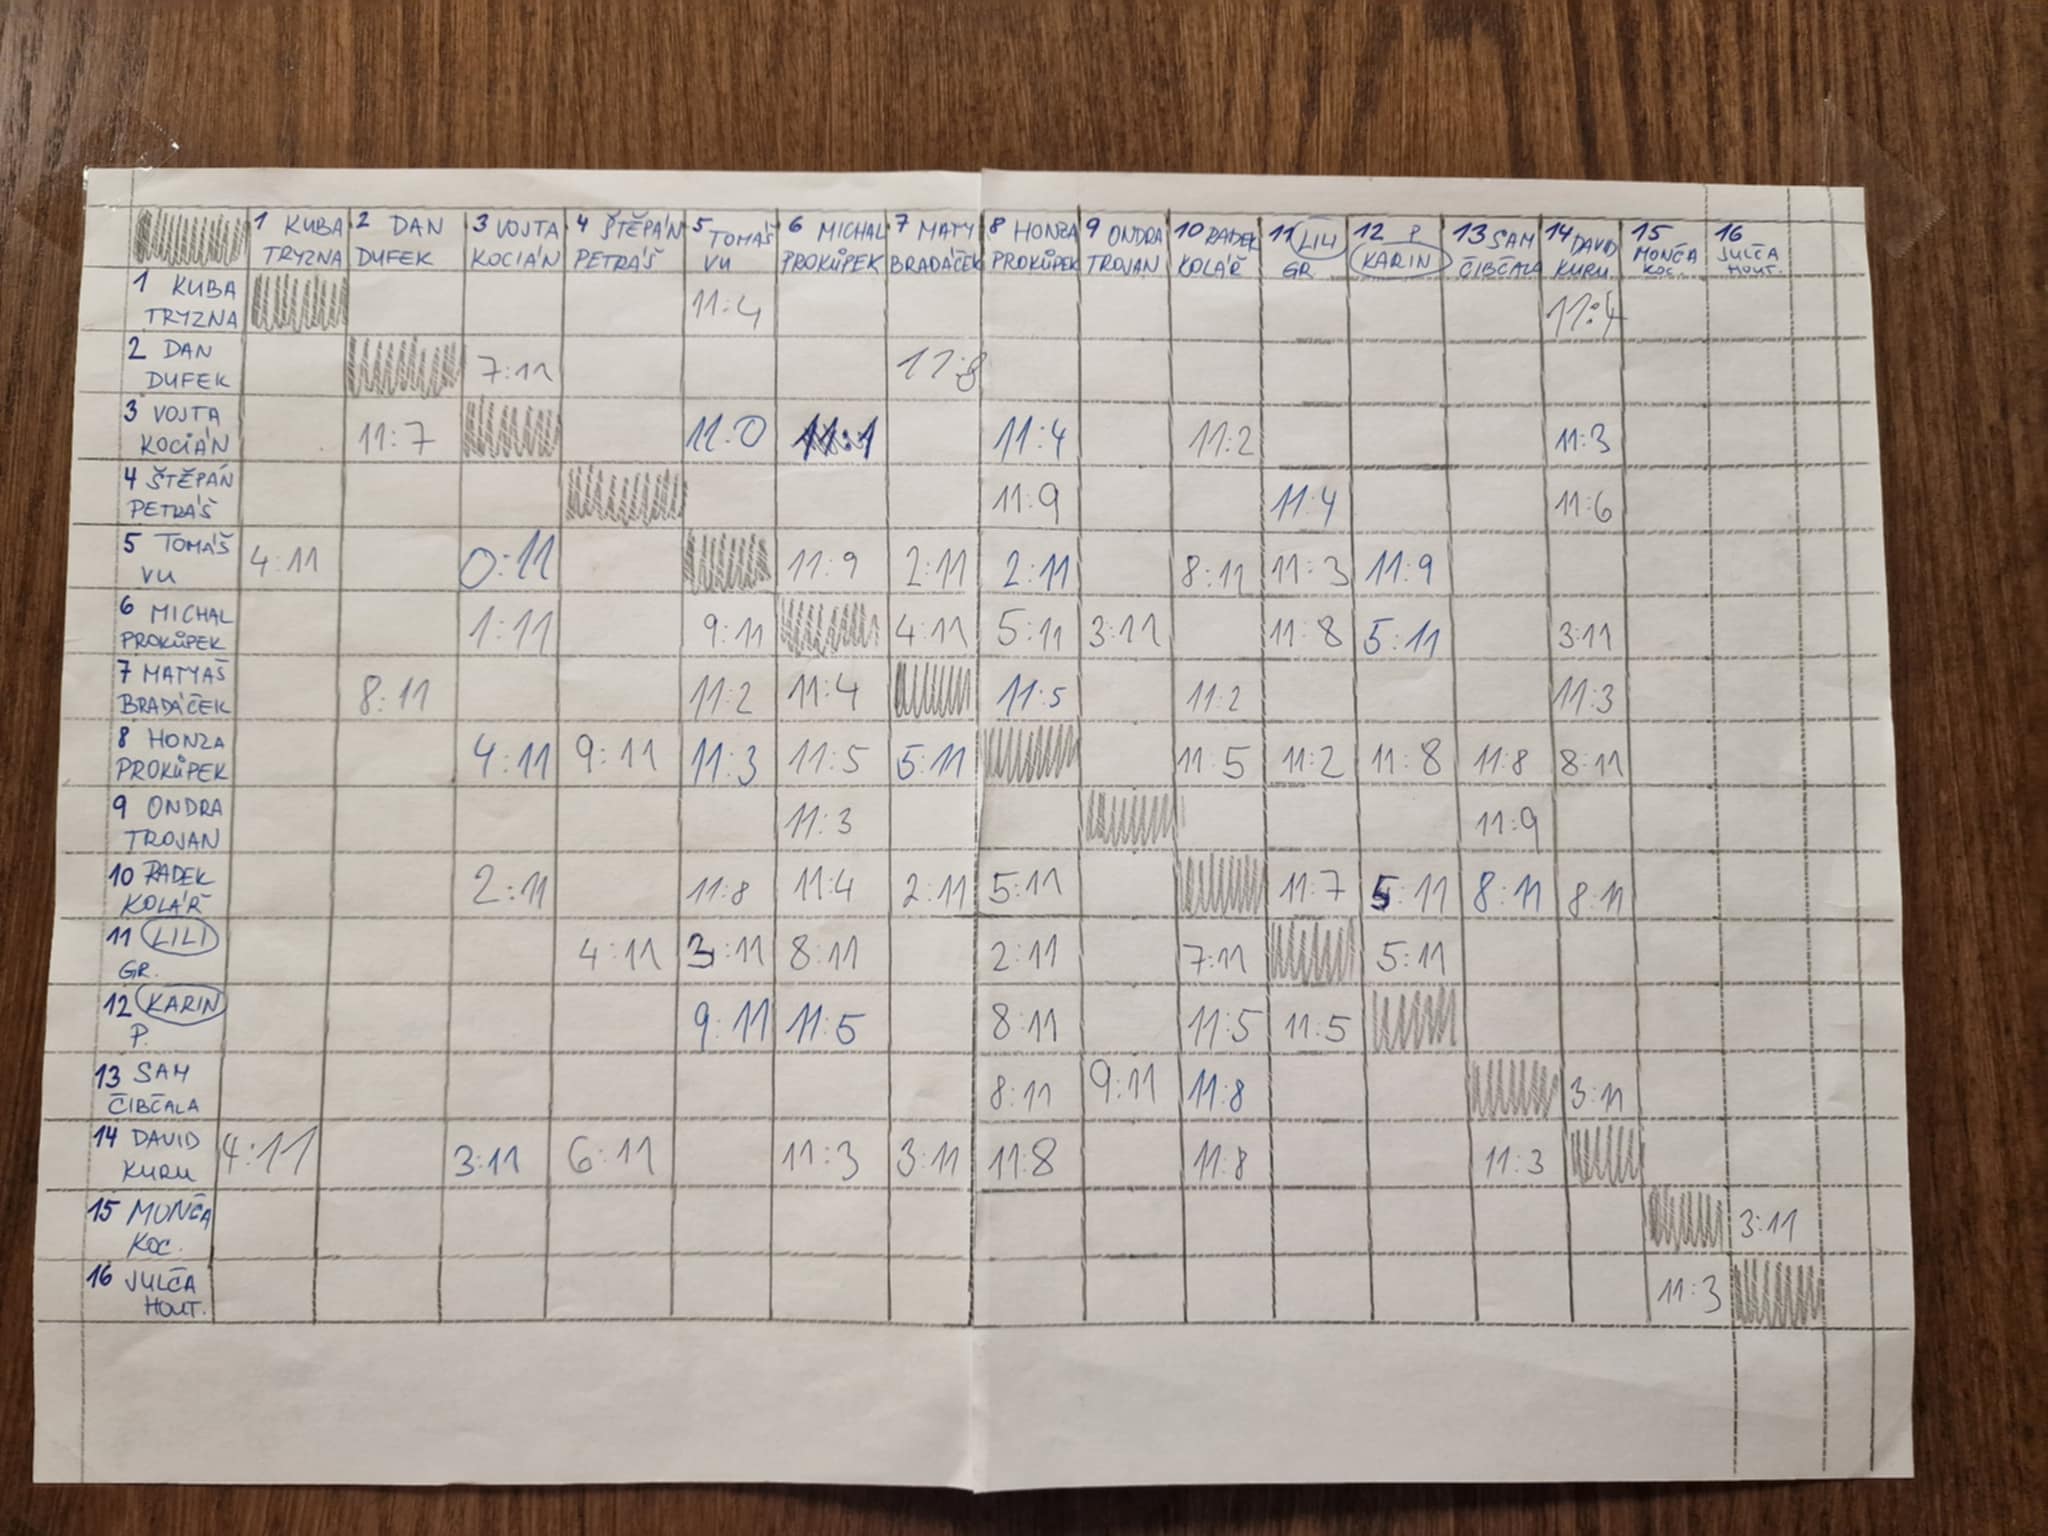 1 KUBA 2 DAN 3 VOJTA 4 ŠTĚPÁN 5 TOMÁŠ 6 MICHAL 7 MATY 8 HONZA 9 ONDRA 10 RADEK 11 LILI 12 P 13 SAM 14 DAVID 15 MONČA 16 JULČA
TRYZNA DUFEK KOCIÁN PETRÁŠ VU PROKŮPEK BRADÁČEK PROKŮPEK TROJAN KOLÁŘ GR. KARIN ČIBČALA KURU KOC. HOUT.
1 KUBA
TRYZNA 11:4 11:4
2 DAN
DUFEK 7:11 11:8
3 VOJTA
KOCIÁN 11:7 11:0 11:1 11:4 11:2 11:3
4 ŠTĚPÁN
PETRÁŠ 11:9 11:4 11:6
5 TOMÁŠ
VU 4:11 0:11 11:9 2:11 2:11 8:11 11:3 11:9
6 MICHAL
PROKŮPEK 1:11 9:11 4:11 5:11 3:11 11:8 5:11 3:11
7 MATYAŠ
BRADÁČEK 8:11 11:2 11:4 11:5 11:2 11:3
8 HONZA
PROKŮPEK 4:11 9:11 11:3 11:5 5:11 11:5 11:2 11:8 11:8 8:11
9 ONDRA
TROJAN 11:3 11:9
10 RADEK
KOLÁŘ 2:11 11:8 11:4 2:11 5:11 11:7 5:11 8:11 8:11
11 LILI
GR. 4:11 3:11 8:11 2:11 7:11 5:11
12 KARIN
P. 9:11 11:5 8:11 11:5 11:5
13 SAM
ČIBČALA 8:11 9:11 11:8 3:11
14 DAVID
KURU 4:11 3:11 6:11 11:3 3:11 11:8 11:8 11:3
15 MONČA
KOC. 3:11
16 JULČA
HOUT. 11:3